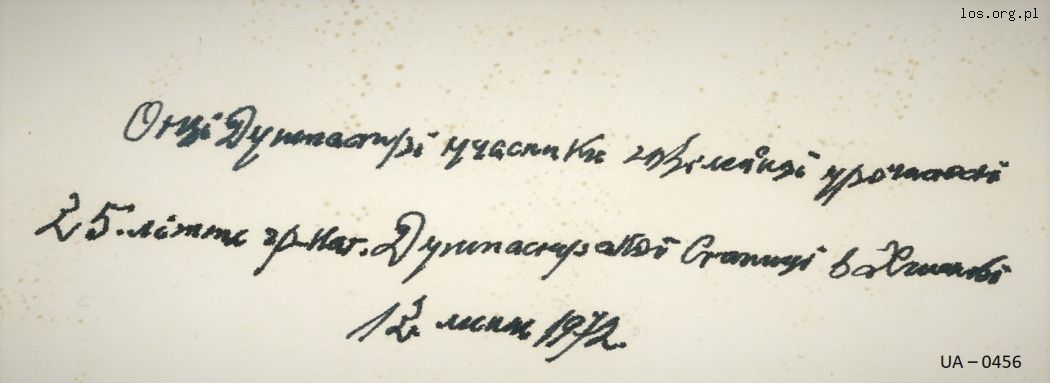 los.org.pl
Отці Душпастирі учасники ювілейної урочистости
25-ліття гр-кат. Душпастирскої Станиці в Хшанові
12 липня 1972.
UA – 0456